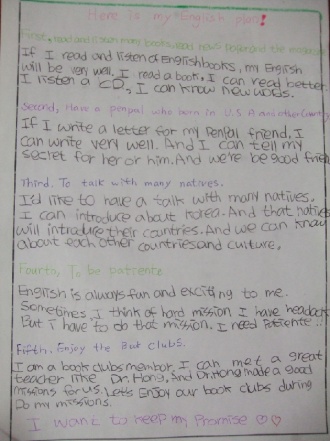 Here is my English plan!
First, read and listen many books, read news paper and the magazine
If I read and listen English books, my English
will be very well. I read a book, I can read better.
I listen a CD, I can know new words.
Second, Have a penpal who born in U.S.A and other country
If I write a letter for my Penpal friend, I
can write very well. And I can tell my
secret for her or him. And we're be good friend
Third. To talk with many natives.
I'd like to have a talk with many natives.
I can introduce about Korea. And that natives
will introduce their countries. And we can know
about each other countries and culture.
Fourto, To be patiente
English is always fun and exciting to me.
Sometimes, I think of hard mission, I have headach
But i have to do that mission. I need Patiente!!
Fifth. Enjoy the Book clubs.
I am a book clubs member. I can met a great
teacher like Dr. Hong. And Dr. Hong made a good
missions for us. Let's Enjoy our book clubs during
Do my missions.
I want to keep my Promise